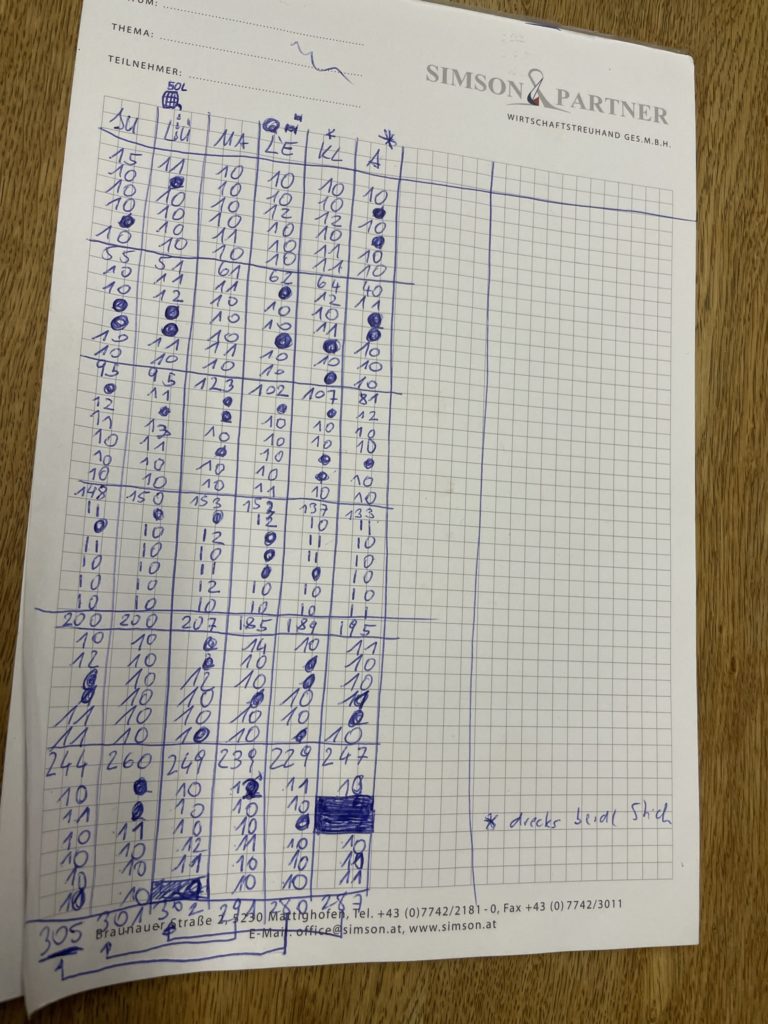 THEMA:
TEILNEHMER:
SIMSON & PARTNER
WIRTSCHAFTSTREUHAND GES.M.B.H.
50L
MA LE KL A
15 11 10 10 10 10
10 10 10 10
10 10 10 12 12 10
10 10 10 10 10
10 11 10 11 10
10 10 10 10 11 10
55 51 61 62 64 40
10 11 11 12 11
10 12 10 10 10
10 10 11
10 10
15 11 11 10 10 10
10 10 10 10 10
95 95 123 102 107 81
11
12 12
11 13 10 10 10 10
10 11 10 10 10
10 10 10 10
10 10 10 11 10 10
148 150 153 152 137 133
11 12 10 11
10 12 11 10
11 10 10 11 10
10 10 11 10
10 10 12 10 10 10
10 10 10 10 10 11
200 200 207 185 189 195
10 10 14 10 11
12 10 10 10
10 12 10 10
10 10 10
11 10 10 10 10
11 10 10 10 10
244 260 249 239 229 247
10 10 11 10
11 10 10 10
10 11 10 10
10 10 12 11 10 10
10 10 11 10 10 10
10 10 10 10 11
305 301 302 291 280 287
* drecks beidl Stich
Braunauer Straße 2, 5230 Mattighofen, Tel. +43 (0)7742/2181 - 0, Fax +43 (0)7742/3011
E-Mail: office@simson.at, www.simson.at